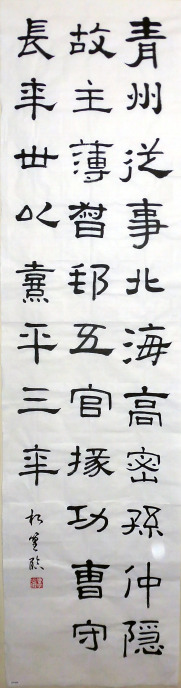 青州從事北海高密孫仲隱
故主薄督郵五官掾功曹守
長年卅以熹平三年 臨